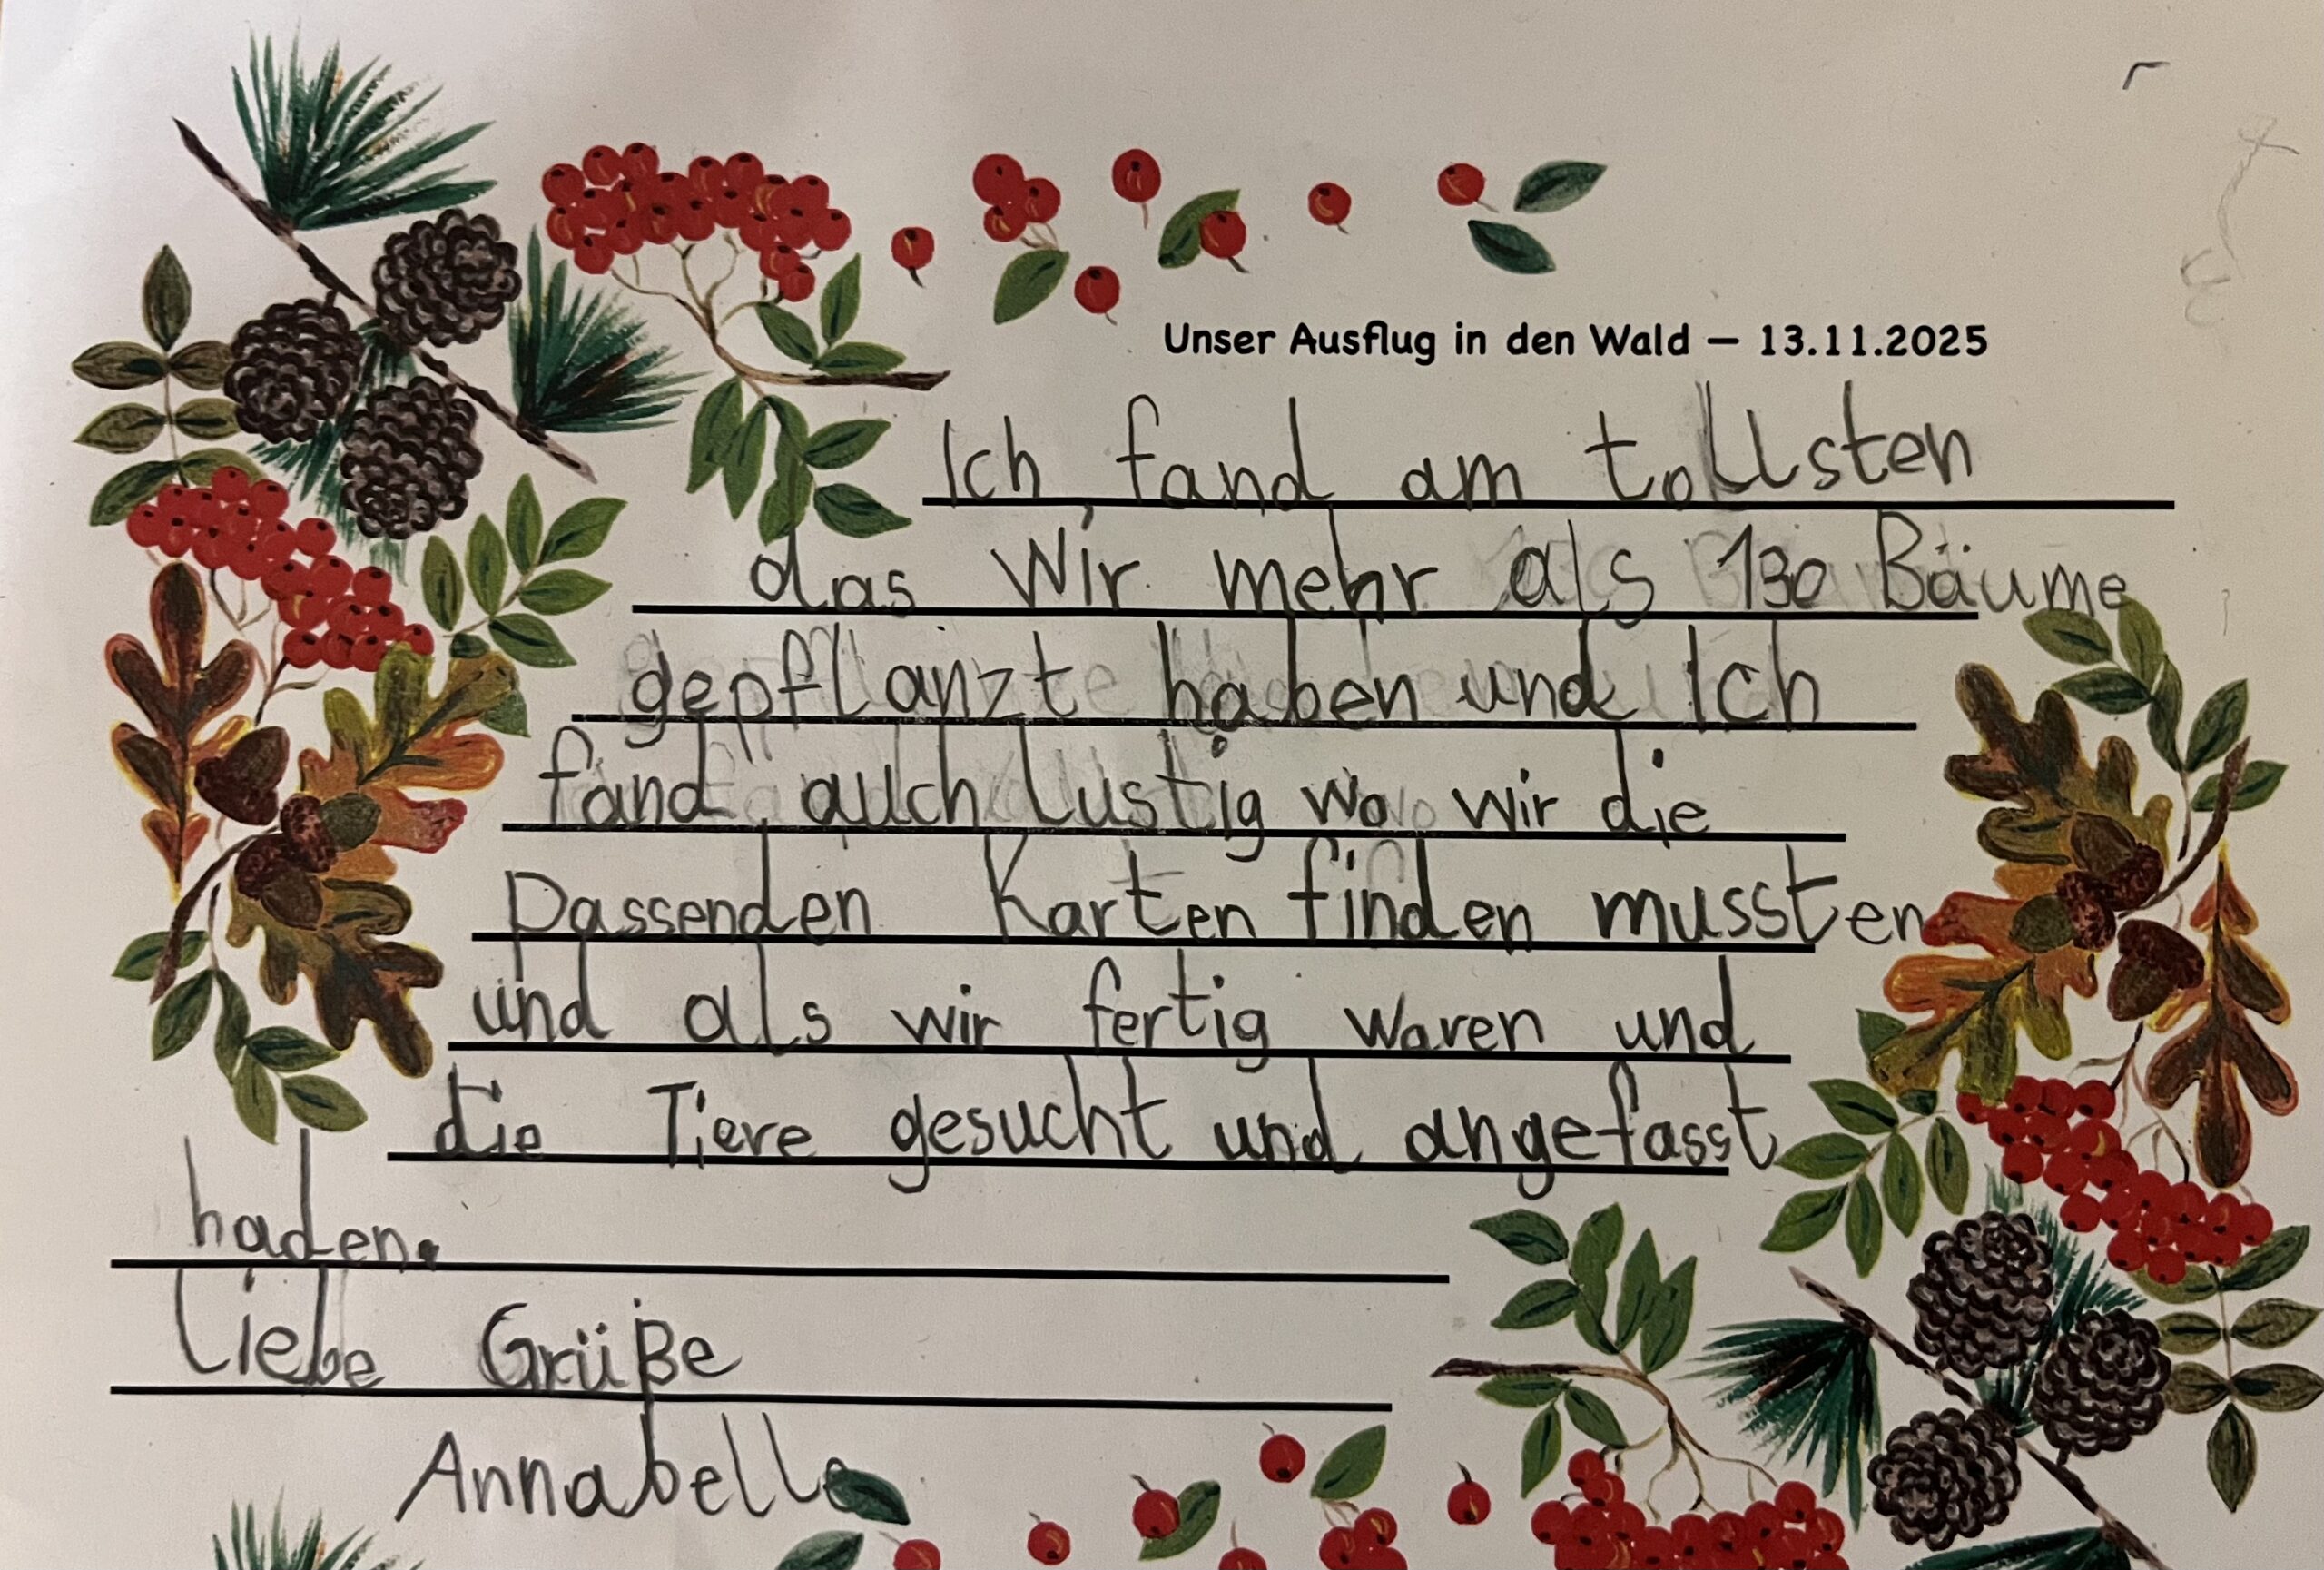 Unser Ausflug in den Wald – 13.11.2025
Ich fand am tollsten
das Wir mehr als 130 Bäume
gepflanzt haben und Ich
fand auch Lustig wo wir die
Passenden Karten finden mussten
und als wir fertig waren und
die Tiere gesucht und angefasst
haden.
Liebe Grüße
Annabelle